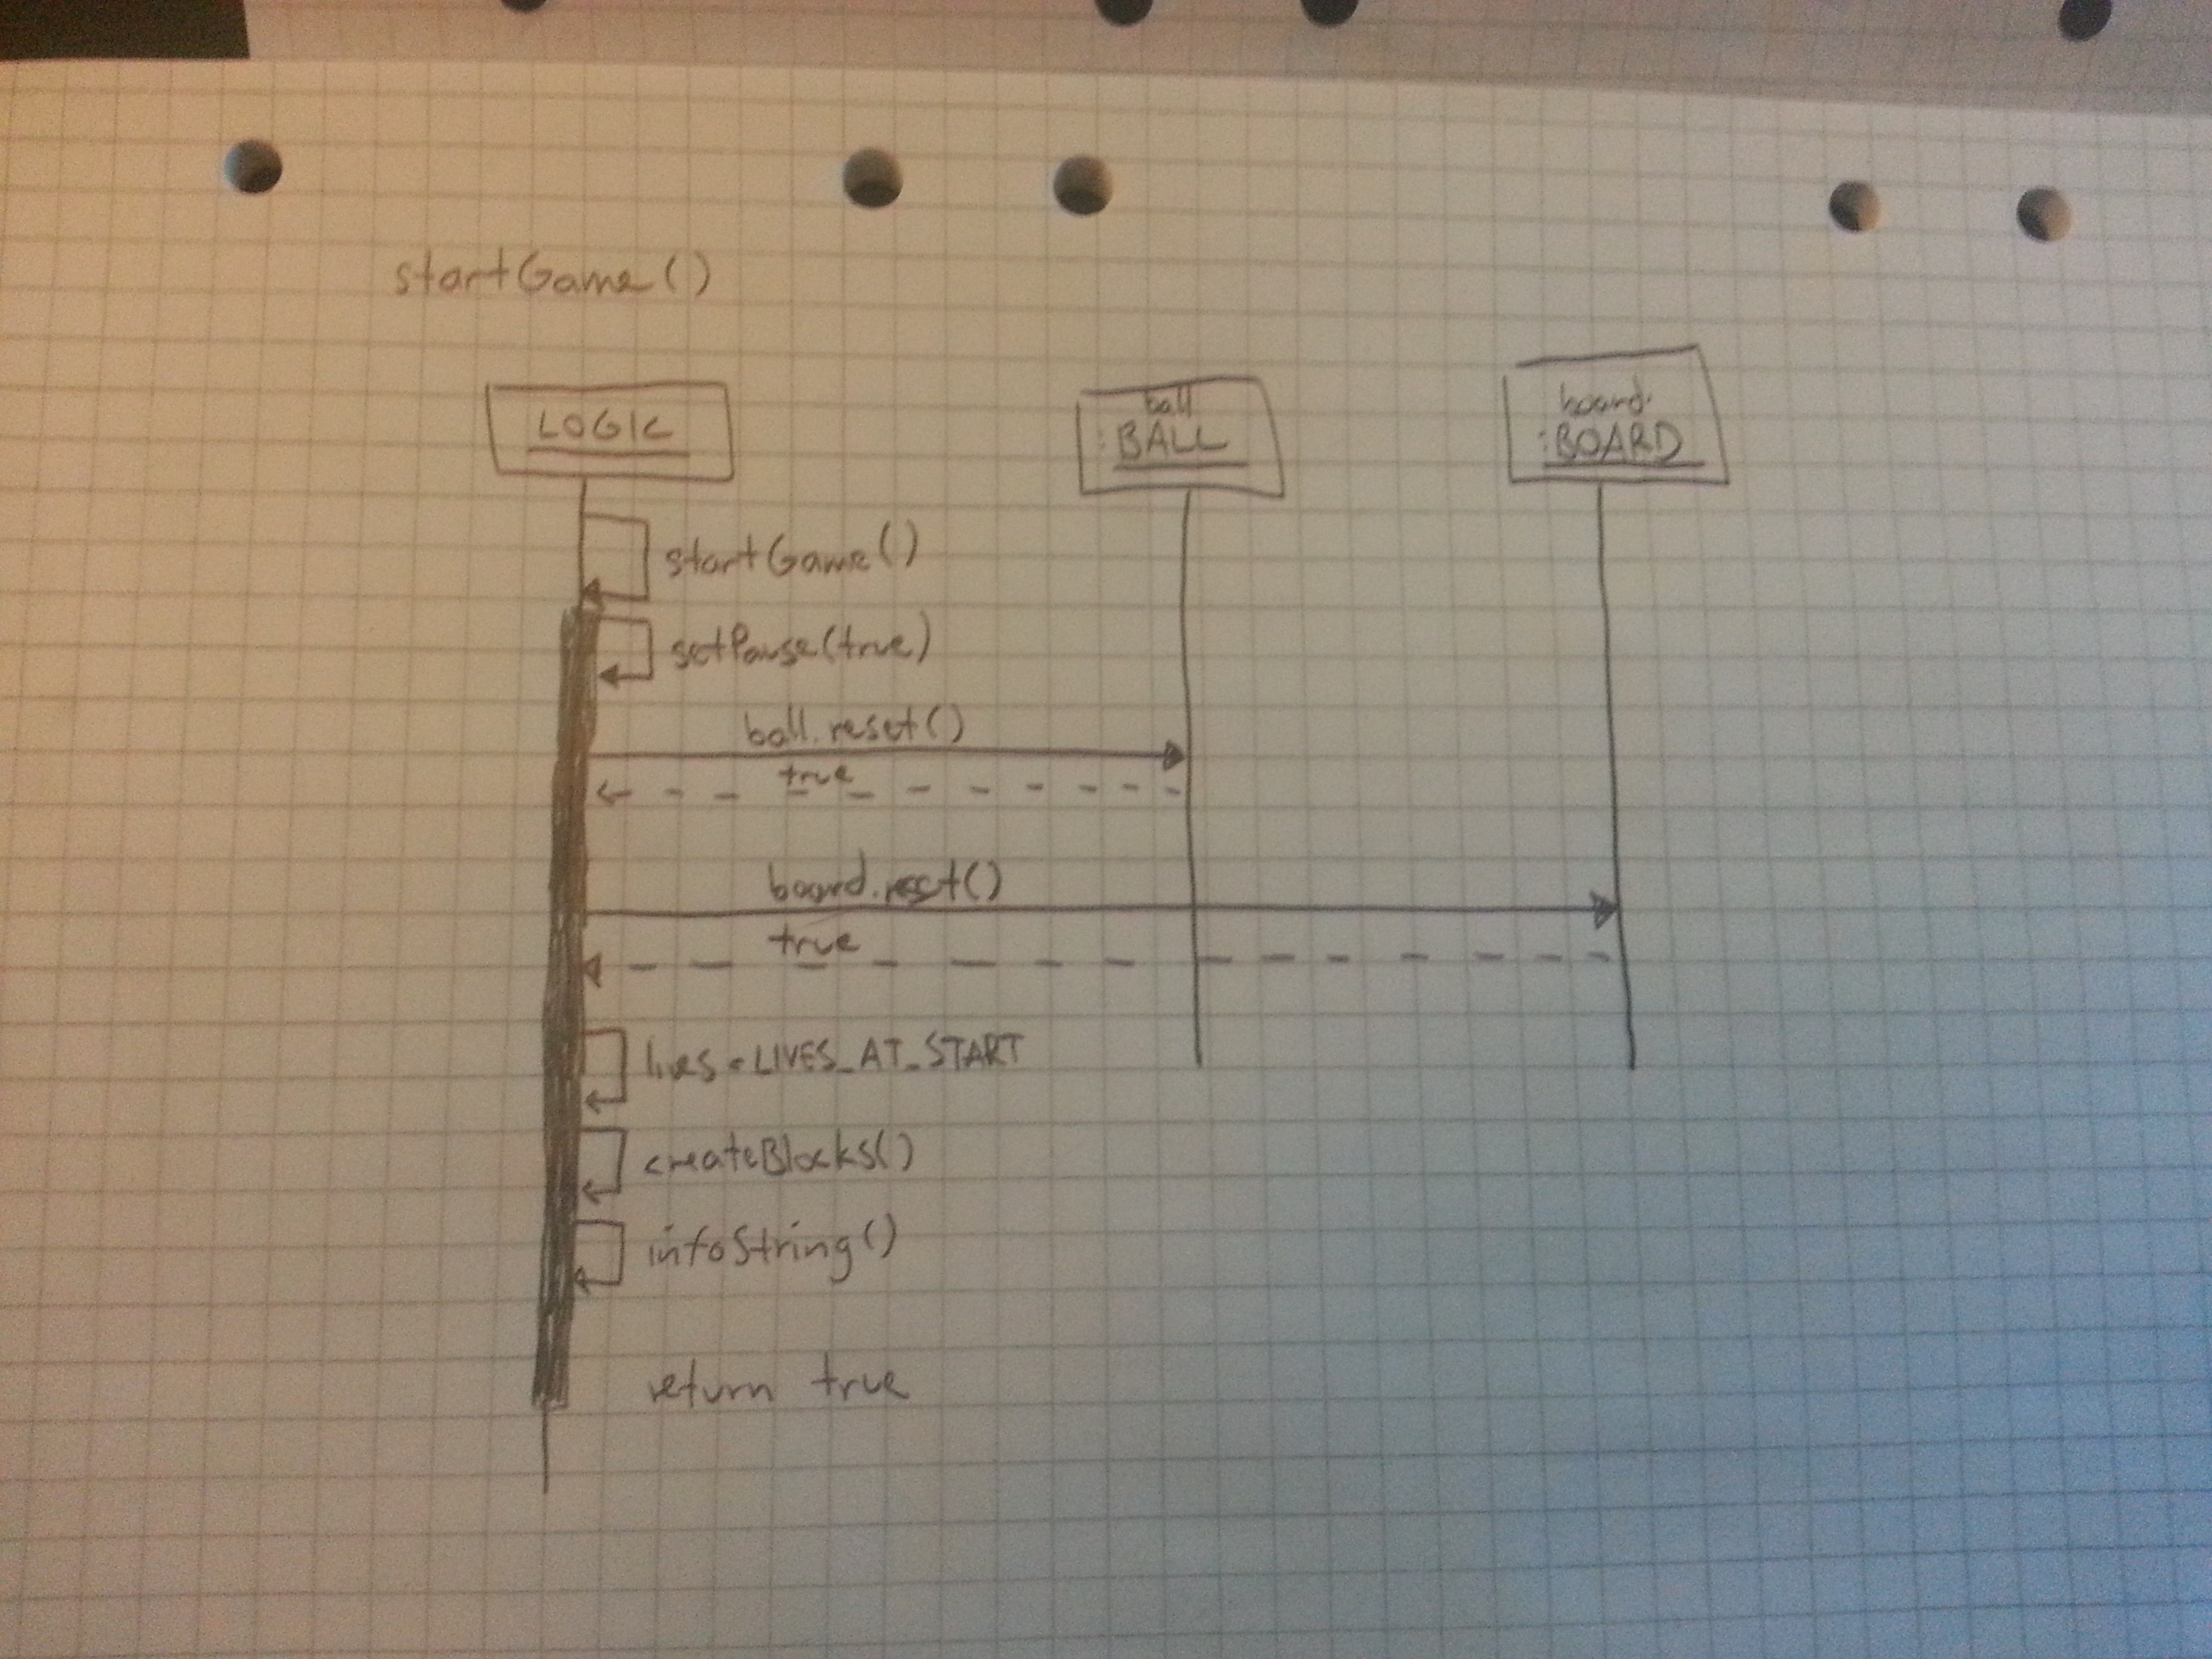 startGame()
LOGIC
ball
:BALL
board
:BOARD
startGame()
setPause(true)
ball.reset()
true
board.reset()
true
lives = LIVES_AT_START
createBlocks()
infoString()
return true